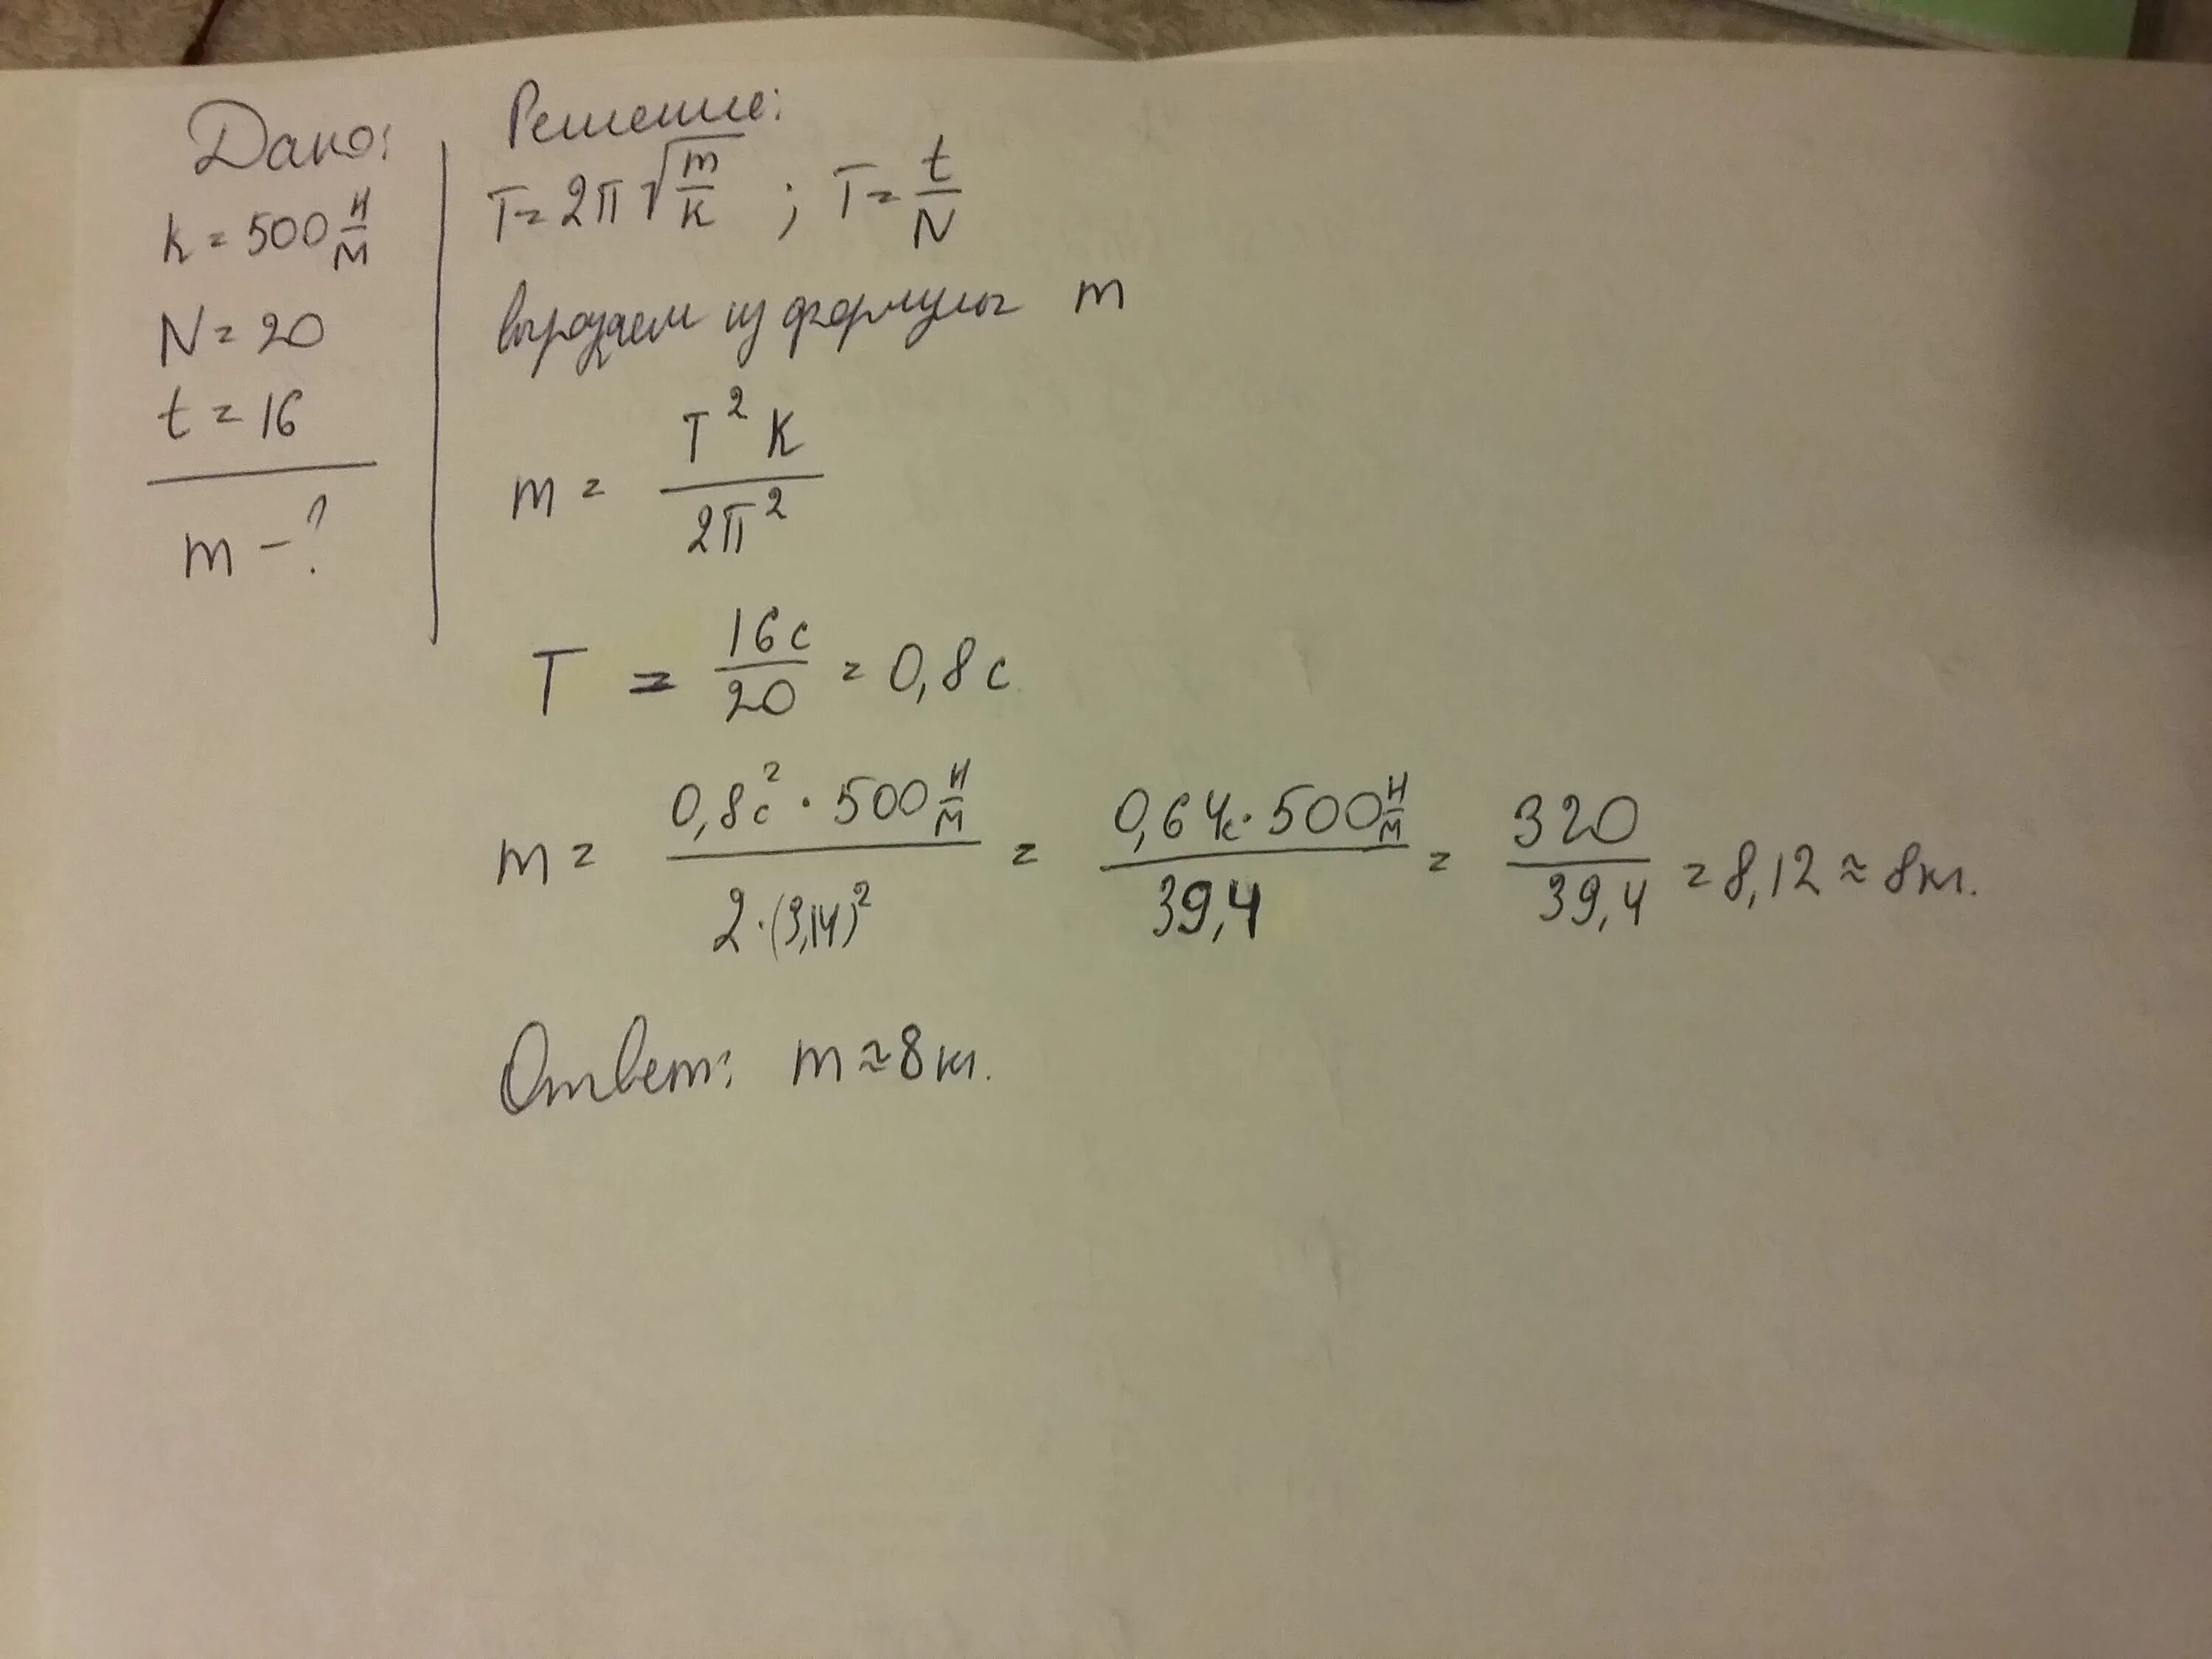 Дано:
k = 500 Н/М
N = 20
t = 16
m - ?
Решение:
T = 2π√(m/k) ; T = t/N
выражаем из формулы m
m = T² K / 2π²
T = 16с / 20 = 0,8 с
m = 0,8с² · 500 Н/М / 2·(3,14)² = 0,64с · 500 Н/М / 39,4 = 320 / 39,4 = 8,12 ≈ 8кг.
Ответ: m ≈ 8 кг.